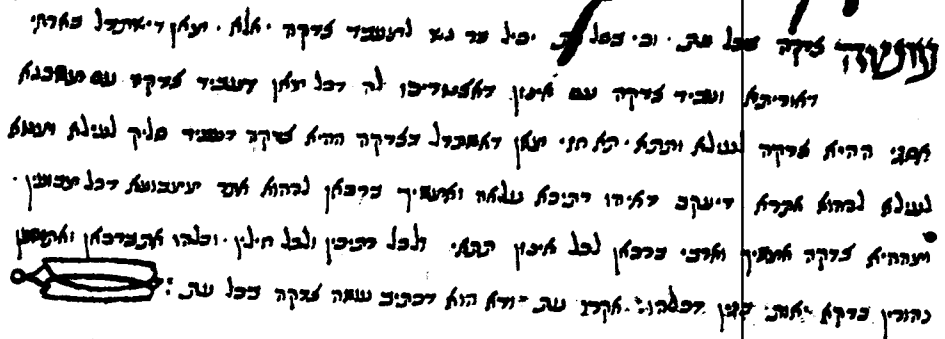 עושה צדקה בכל עת. וכי בכל עת יכיל בר נש למעבד צדקה. אלא. מאן דישתדל בארחי
דאורייתא ועביד צדקה עם אינון דאצטריכו לה דכל מאן דעביד צדקה עם מסכנא
אסגי ההיא צדקה לעילא ותתא. תא חזי מאן דאשתדל בצדקה ההיא צדקה דעביד סליק לעילא ומטא
לעילא לההוא אתרא דיעקב דאיהו רתיכא עלאה ואמשיך ברכאן לההוא אתר ממבועא דכל מבועין.
ומההיא צדקה אמשיך וארבי ברכאן לכל אינון תתאי ולכל רתיכין ולכל חילין. וכלהו אתברכאן ואתוספן
נהורין כדקא יאות בגין דכלהו אקרו עת ודא הוא דכתיב עושה צדקה בכל עת: